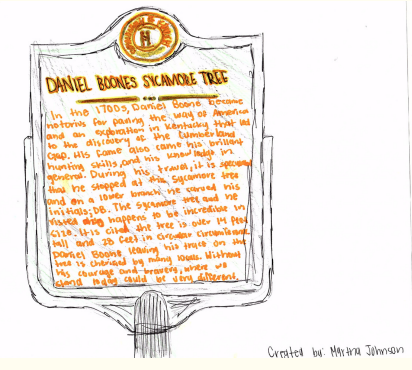 H
DANIEL BOONES SYCAMORE TREE
In the 1700s, Daniel Boone became
notorious for paving the way of America
and an exploration in Kentucky that led
to the discovery of the Cumberland
Gap. His fame also came his brilliant
hunting skills, and his knowledge in
general. During his travel, it is
that he stopped at this sycamore tree
and on a lower branch he carved his
initials; DB. The sycamore tree and he
happens to be incredible in
size. It is cited the tree is over 14 feet
tall and 28 feet in circular circumference
Daniel Boone, leaving his trace on this
tree is cherished by many locals. Without
his courage and bravery, where we
stand today could be very different.
Created by: Martha Johnson